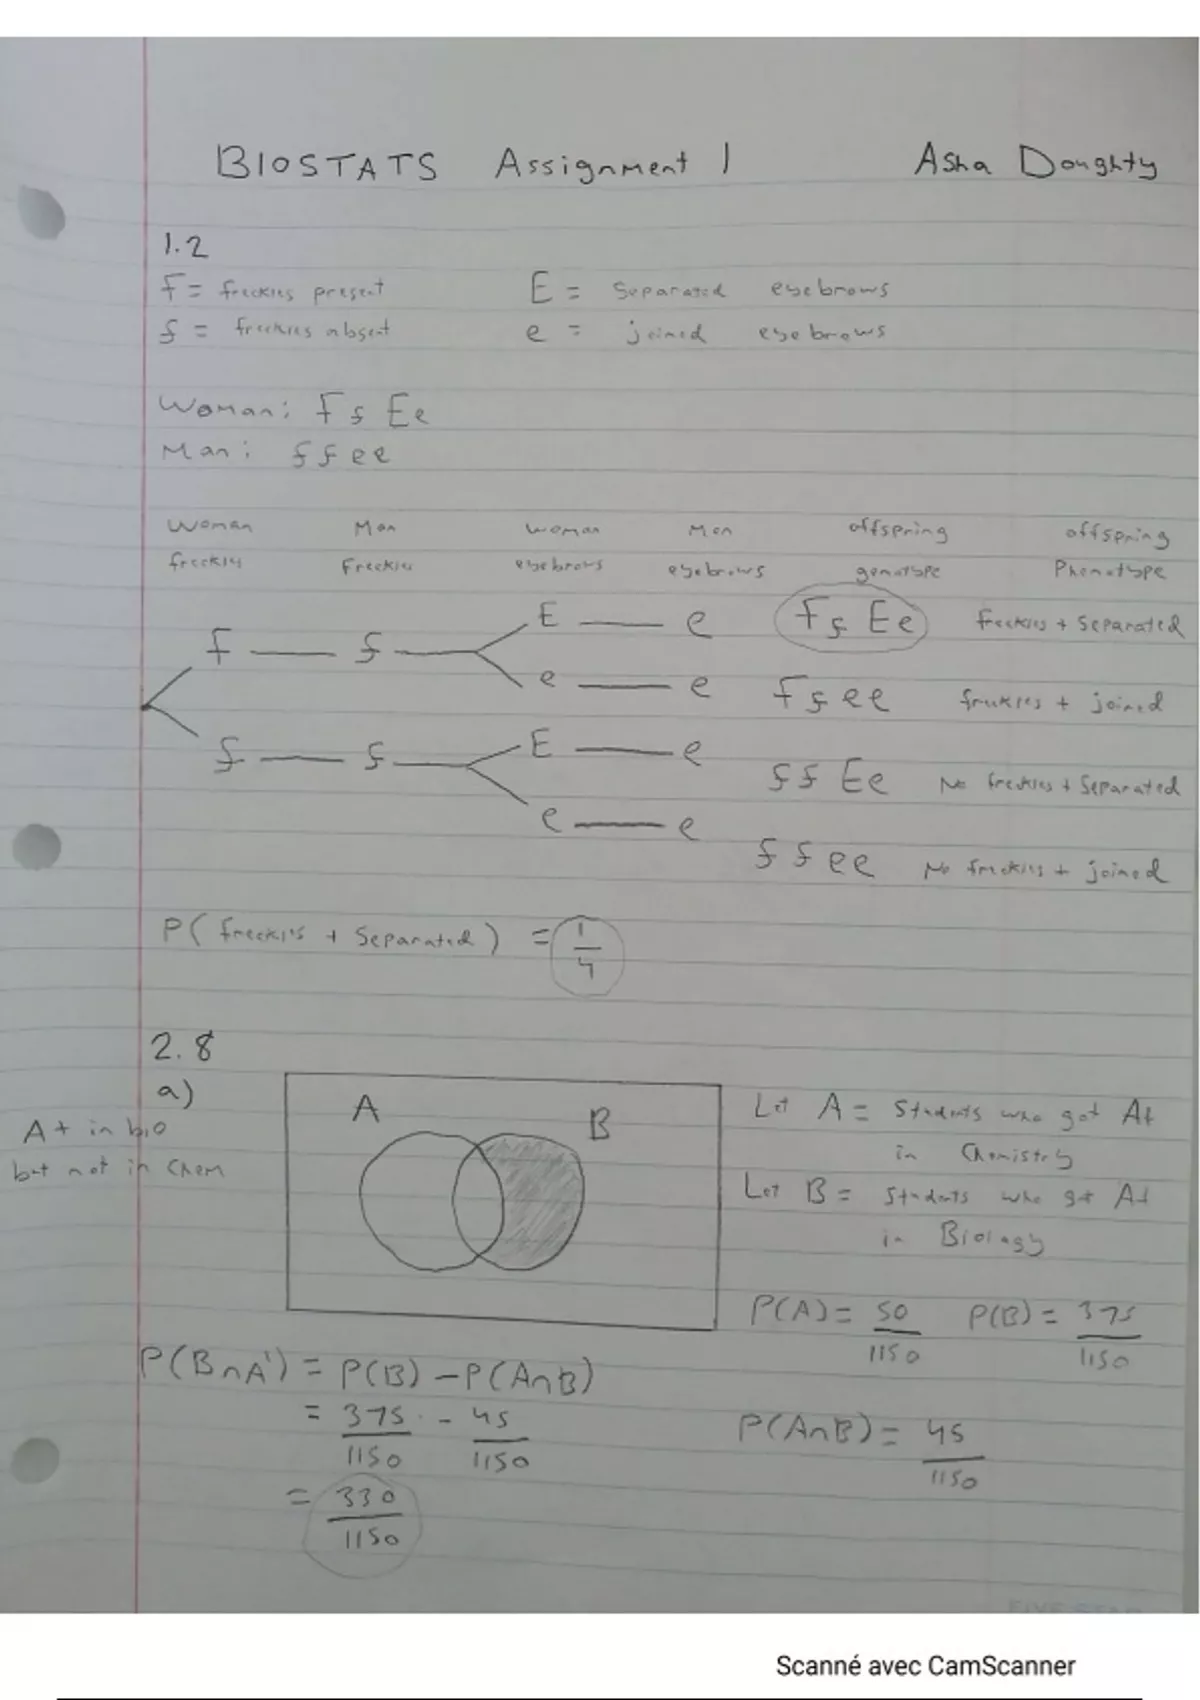 BIOSTATS Assignment 1 Asha Doughty
1.2
F = freckles present E = Separated eyebrows
f = freckles absent e = joined eyebrows
Woman: Ff Ee
Man: ff ee
Woman Man Woman Man offspring offspring
freckles Freckles eyebrows eyebrows genotype Phenotype
E e Ff Ee freckles + Separated
F f
e e Ff ee freckles + joined
f f E e ff Ee No freckles + Separated
e e ff ee No freckles + joined
P( freckles + Separated ) = 1/4
2.8
a)
A+ in bio
but not in Chem
A B
Let A = Students who got A+
in Chemistry
Let B = Students who got A+
in Biology
P(A) = 50/1150 P(B) = 375/1150
P(B∩A') = P(B) - P(A∩B)
= 375/1150 - 45/1150 P(A∩B) = 45/1150
= 330/1150
Scanné avec CamScanner